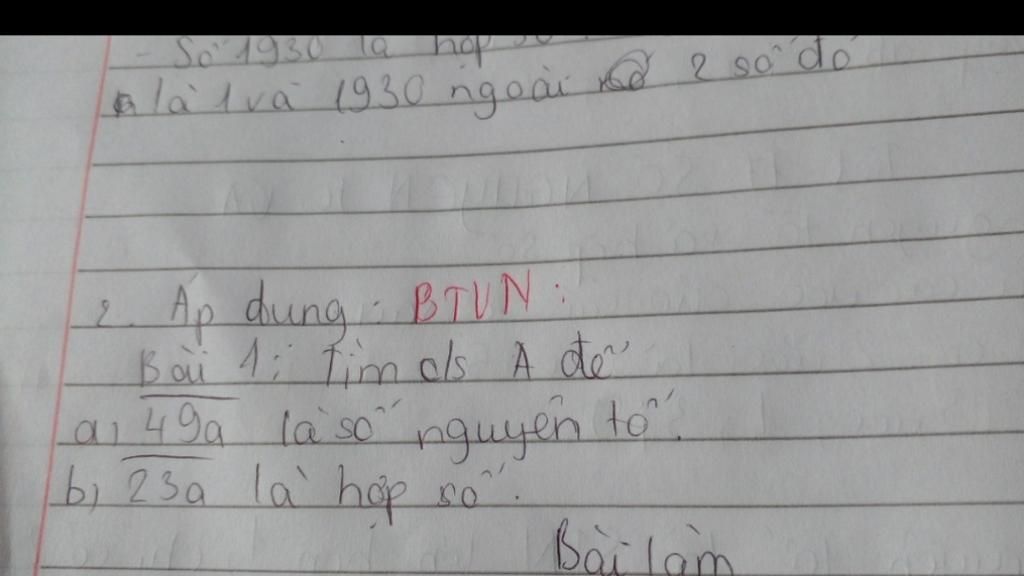 - Số 1930 là hợp số
là 1 và 1930 ngoài 2 số đó
2. Áp dụng: BTVN:
Bài 1: Tìm c/s A để
a, 49a là số nguyên tố.
b, 23a là hợp số.
Bài làm